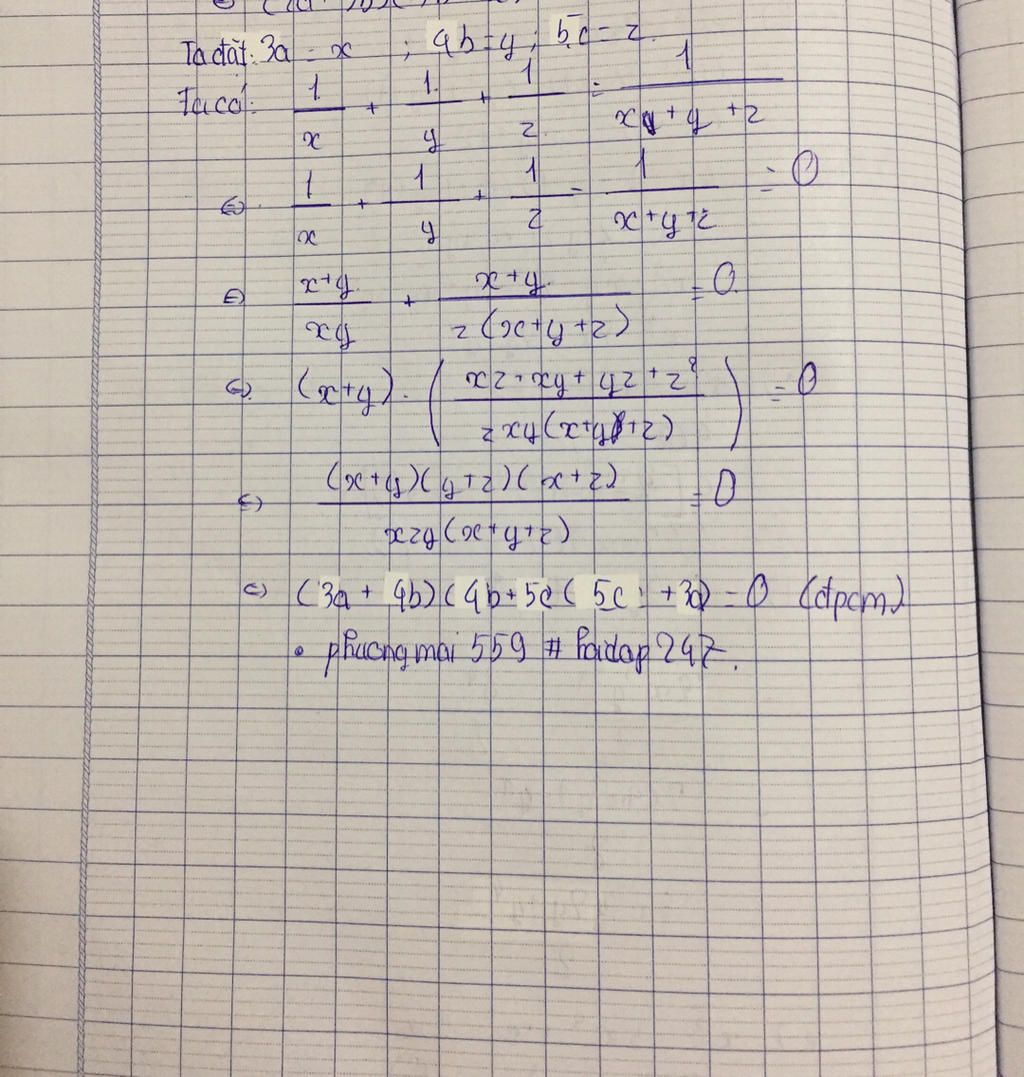 Ta đặt: 3a = x ; 4b = y ; 5c = z.
Ta có: 1/x + 1/y + 1/z = 1/(x + y + z)
⇔ 1/x + 1/y + 1/z - 1/(x+y+z) = 0
⇔ (x+y)/(xy) + (x+y)/(z(x+y+z)) = 0
⇔ (x+y).((zx + xy + zy + z²)/(zxy(x+y+z))) = 0
⇔ ((x+y)(y+z)(x+z))/(xzy(x+y+z)) = 0
⇔ (3a + 4b)(4b+5c(5c +3a) = 0 (đpcm)
• phuongmai 559 # hoidap 247.